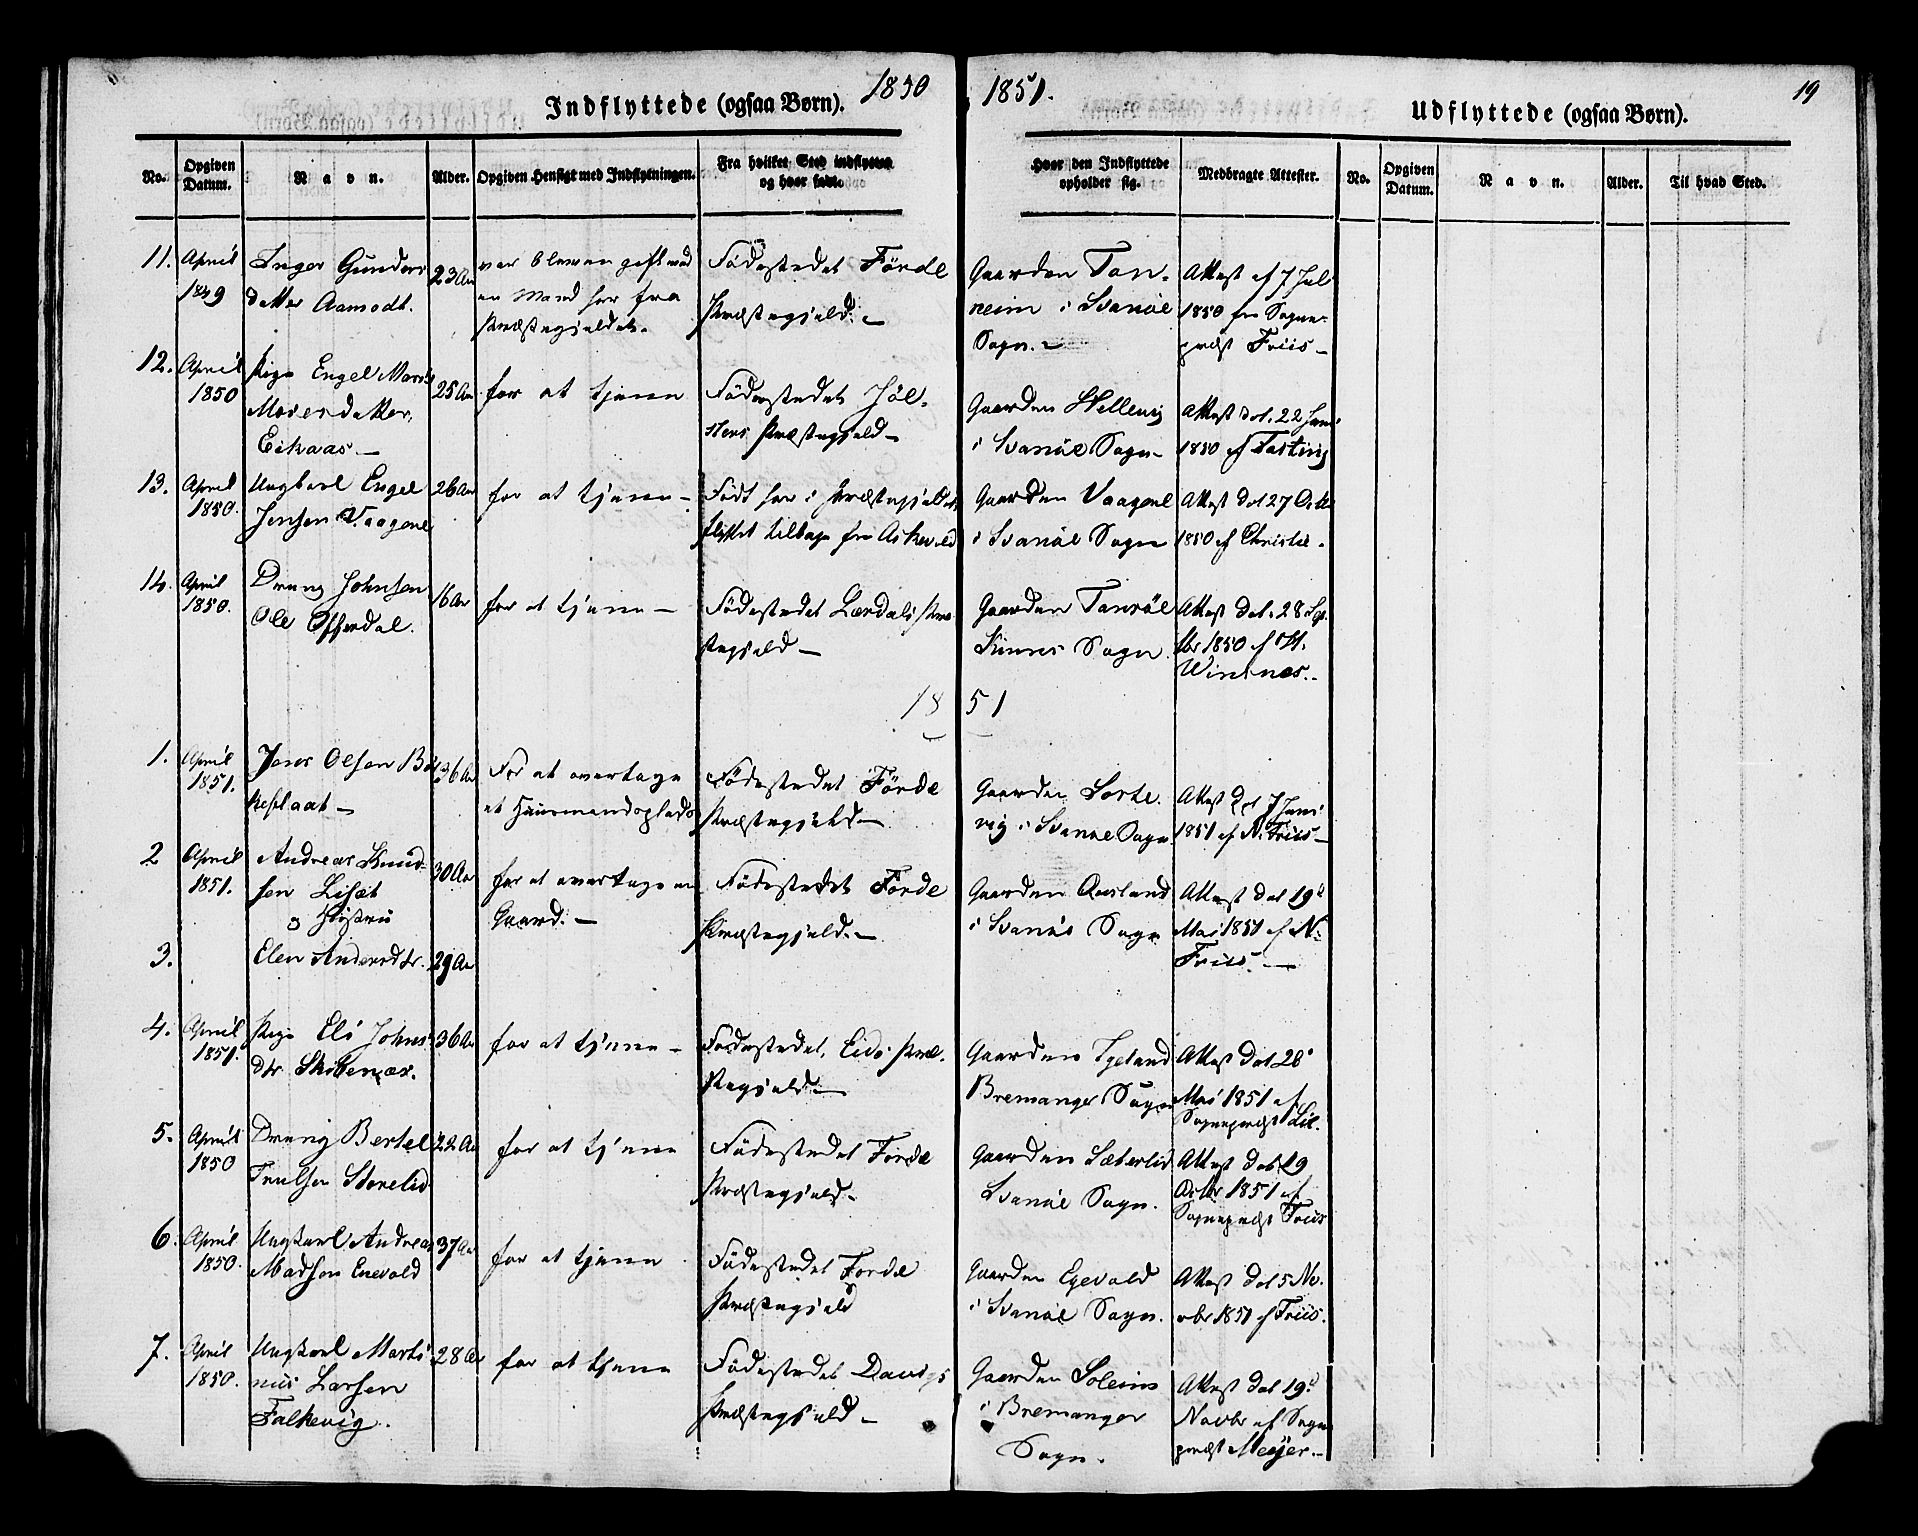 1850
1851.
19
Indflyttede (ogsaa Børn).
Udflyttede (ogsaa Børn).
No. Opgiven Datum. Navn. Alder. Opgiven Hensigt med Indflytningen. Fra hvilket Sted indflyttet og hvor født. Hvor den Indflyttede opholder sig. Medbragte Attester. No. Opgiven Datum. Navn. Alder. Til hvad Sted.
11. April
1849
Inger Gunders
datter Aamodt.
23 Aar
var bleven gift med
en Mand her fra
Præstegjeldet.
Födestedet Förde
Præstegjeld. –
Gaarden Ton-
neim i Svanöe
Sogn. –
Attest af 7 Juli
1850 fra Sogne-
præst Friis –
12. April
1850
Pige Engel Maris
Mosesdatter,
Eikaas –
25 Aar
for at tjene
Födestedet Jöl-
sters Præstegjeld –
Gaarden Hellevig
i Svanöe Sogn –
Attest dat. 22 Juni
1850 af Tasting
13. April
1850.
Ungkarl Engel
Jensen Vaagene
26 Aar
for at tjene –
Födt her i Præstegjeldet,
flyttet tilbage fra Askevold
Gaarden Vaagene
i Svanöe Sogn
Attest dat 27 Octb
1850 af Christie.
14. April
1850.
Dreng Johnsen
Ole Offerdal.
16 Aar
for at tjene –
Födestedet Lærdals Præ
stegjeld –
Gaarden Tansöe
Kinns Sogn
Attest dat. 28 Sep
tbr 1850 af H.
Winsnes. –
18 51
1. April
1851.
Jens Olsen Bö
keflaat –
36 Aar
For at overtage
et Huusmandsplads
Födestedet Förde
Præstegjeld –
Gaarden Sorte-
vig i Svanöe Sogn
Attest dat 7 Juni
1851 af N. Friis –
2 April
1851.
Andreas Knud-
sen Lisæt
og Hustru
30 Aar
for at overtage en
Gaard. –
Födestedet Förde
Præstegjeld. –
Gaarden Qvesland
i Svanöe Sogn
Attest dat 19d
Mai 1851 af N.
Friis. –
3.
Elen Andersdtr.
29 Aar
4. April
1851.
Pige Eli Johns
dtr Skibenæs.
36 Aar
for at tjene –
Födestedet, Eids Præ-
stegjeld –
Gaarden Igeland
Bremanger Sogn
Attest dat 26
Mai 1851 af
Sognepræst Lie.
5. April
1850
Dreng Bertel
Trulsen Storelid
22 Aar
for at tjene
Födestedet Förde
Præstegjeld –
Gaarden Sæterlid
Svanöe Sogn.
Attest dat. 19
Octbr 1851 af
Sognepræst Friis
6. April
1850.
Ungkarl Andreas
Madsen Enevold
37 Aar
for at tjene
Födestedet Förde
Præstegjeld
Gaarden Egevold
i Svanöe Sogn.
Attest dat 5 No-
vbr 1851 af Friis.
7. April
1850.
Ungkarl Marti
nus Larsen
Falkevig.
28 Aar
for at tjene
Födestedet Davigs
Præstegjeld –
Gaarden Soleim
i Bremanger
Sogn.
Attest dat 19d
Novbr af Sogne
præst Meyer. –